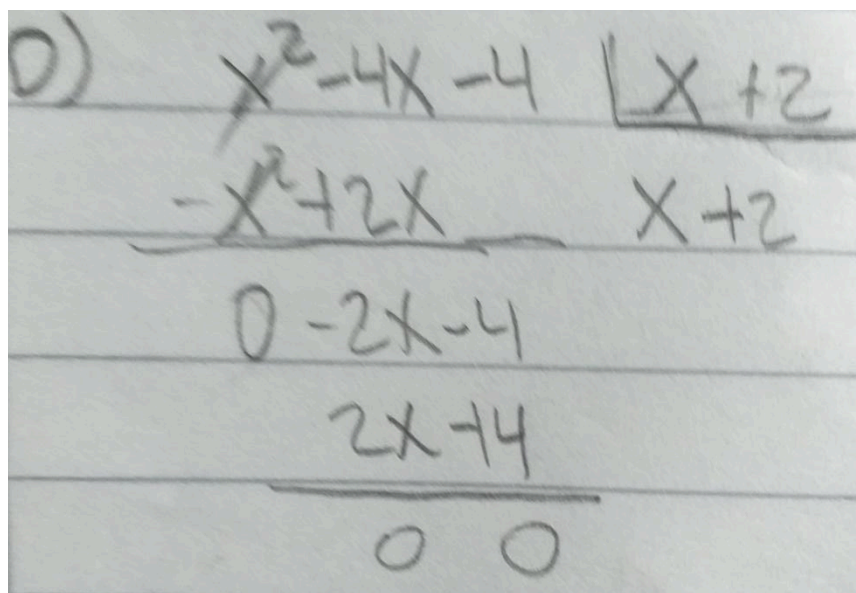 D) x² -4x -4 | x +2
-x² +2x x +2
0 -2x -4
2x +4
0 0